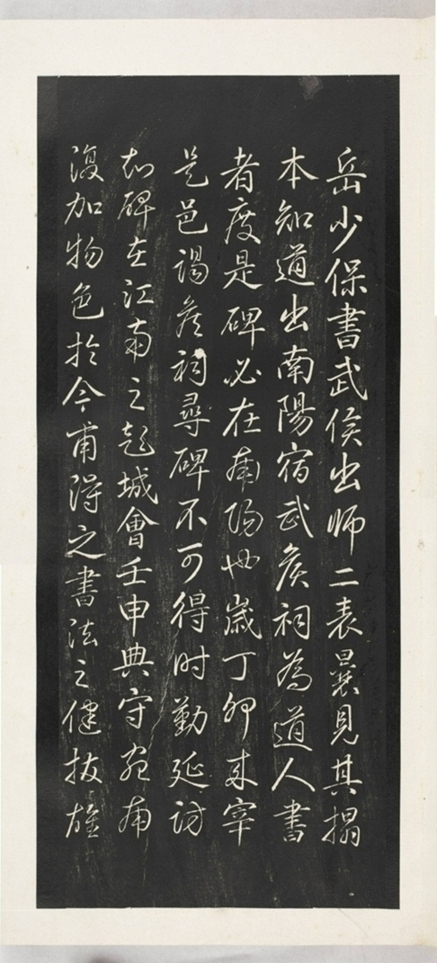 岳少保書武侯出師二表曩見其搨
本知道出南陽宿武侯祠為道人書
者度是碑必在南陽也歲丁卯来宰
是邑謁侯祠尋碑不可得时勤延訪
知碑在江南之彭城會壬申典守宛南
復加物色於今甫得之書法之健拔雄